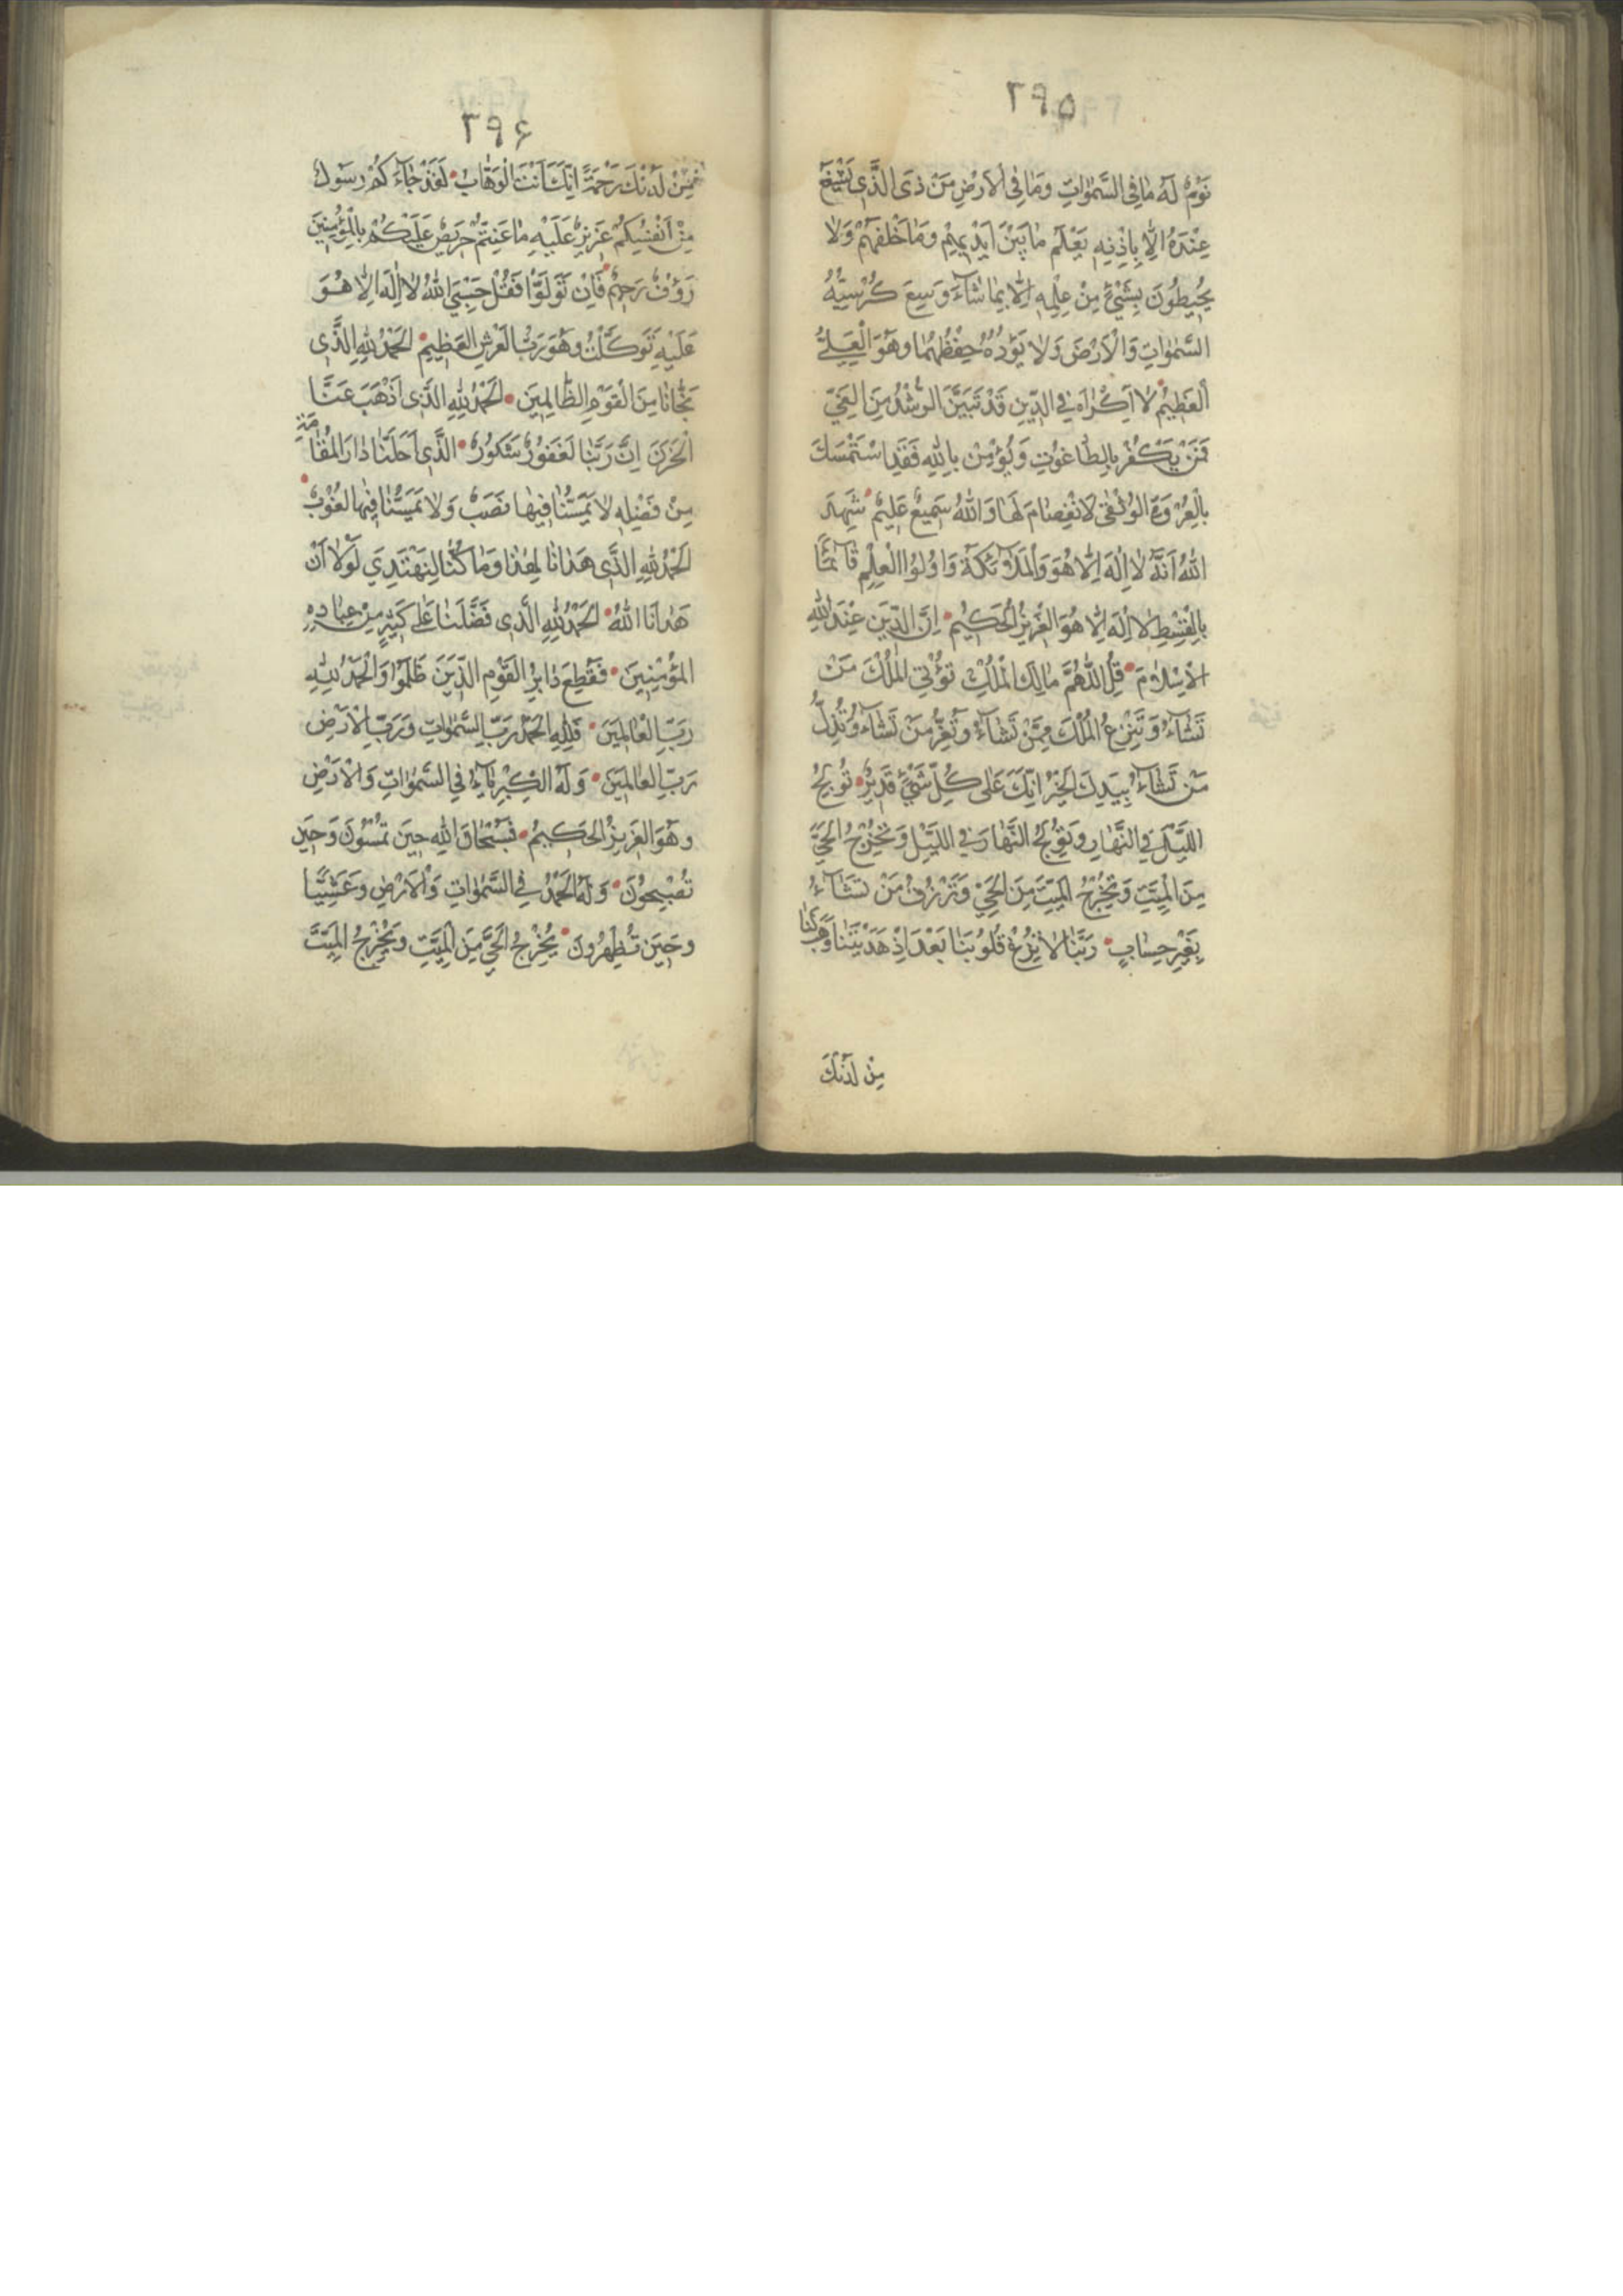 ۲۹۵
نَوْمٌ لَهُ مٰا فِى السَّمٰوٰاتِ وَمٰا فِى الْاَرْضِ مَنْ ذَى الَّذِى يَشْفَعُ
عِنْدَهُ اِلّٰا بِاِذْنِهِ يَعْلَمُ مٰا بَيْنَ اَيْدِيهِمْ وَمٰا خَلْفَهُمْ وَلٰا
يُحِيطُونَ بِشَىْءٍ مِنْ عِلْمِهِ اِلّٰا بِمٰا شٰآءَ وَسِعَ كُرْسِيُّهُ
السَّمٰوٰاتِ وَالْاَرْضَ وَلٰا يَؤُدُهُ حِفْظُهُمٰا وَهُوَ الْعَلِىُّ
الْعَظِيمُ لٰا اِكْرٰاهَ فِى الدِّينِ قَدْ تَبَيَّنَ الرُّشْدُ مِنَ الْغَىِّ
فَمَنْ يَكْفُرْ بِالطّٰاغُوتِ وَيُؤْمِنْ بِاللّٰهِ فَقَدِ اسْتَمْسَكَ
بِالْعُرْوَةِ الْوُثْقٰى لَا انْفِصٰامَ لَهٰا وَاللّٰهُ سَمِيعٌ عَلِيمٌ شَهِدَ
اللّٰهُ اَنَّهُ لٰا اِلٰهَ اِلّٰا هُوَ وَالْمَلٰٓائِكَةُ وَاُولُوا الْعِلْمِ قٰآئِمًا
بِالْقِسْطِ لٰا اِلٰهَ اِلّٰا هُوَ الْعَزِيزُ الْحَكِيمُ اِنَّ الدِّينَ عِنْدَ اللّٰهِ
الْاِسْلٰامُ قُلِ اللّٰهُمَّ مٰالِكَ الْمُلْكِ تُؤْتِى الْمُلْكَ مَنْ
تَشٰآءُ وَتَنْزِعُ الْمُلْكَ مِمَّنْ تَشٰآءُ وَتُعِزُّ مَنْ تَشٰآءُ وَتُذِلُّ
مَنْ تَشٰآءُ بِيَدِكَ الْخَيْرُ اِنَّكَ عَلٰى كُلِّ شَىْءٍ قَدِيرٌ تُولِجُ
اللَّيْلَ فِى النَّهٰارِ وَتُولِجُ النَّهٰارَ فِى اللَّيْلِ وَتُخْرِجُ الْحَىَّ
مِنَ الْمَيِّتِ وَتُخْرِجُ الْمَيِّتَ مِنَ الْحَىِّ وَتَرْزُقُ مَنْ تَشٰآءُ
بِغَيْرِ حِسٰابٍ رَبَّنٰا لٰا تُزِغْ قُلُوبَنٰا بَعْدَ اِذْ هَدَيْتَنٰا وَهَبْ لَنٰا
مِنْ لَدُنْكَ
۲۹۶
مِنْ لَدُنْكَ رَحْمَةً اِنَّكَ اَنْتَ الْوَهّٰابُ لَقَدْ جٰآءَكُمْ رَسُولٌ
مِنْ اَنْفُسِكُمْ عَزِيزٌ عَلَيْهِ مٰا عَنِتُّمْ حَرِيصٌ عَلَيْكُمْ بِالْمُؤْمِنِينَ
رَؤُفٌ رَحِيمٌ فَاِنْ تَوَلَّوْا فَقُلْ حَسْبِىَ اللّٰهُ لٰا اِلٰهَ اِلّٰا هُوَ
عَلَيْهِ تَوَكَّلْتُ وَهُوَ رَبُّ الْعَرْشِ الْعَظِيمِ الْحَمْدُ لِلّٰهِ الَّذِى
نَجّٰانٰا مِنَ الْقَوْمِ الظّٰالِمِينَ اَلْحَمْدُ لِلّٰهِ الَّذِى اَذْهَبَ عَنَّا
الْحَزَنَ اِنَّ رَبَّنٰا لَغَفُورٌ شَكُورٌ الَّذِى اَحَلَّنٰا دٰارَ الْمُقٰامَةِ
مِنْ فَضْلِهِ لٰا يَمَسُّنٰا فِيهٰا نَصَبٌ وَلٰا يَمَسُّنٰا فِيهٰا لُغُوبٌ
اَلْحَمْدُ لِلّٰهِ الَّذِى هَدٰانٰا لِهٰذٰا وَمٰا كُنّٰا لِنَهْتَدِىَ لَوْلٰا اَنْ
هَدٰانَا اللّٰهُ اَلْحَمْدُ لِلّٰهِ الَّذِى فَضَّلَنٰا عَلٰى كَثِيرٍ مِنْ عِبٰادِهِ
الْمُؤْمِنِينَ فَقُطِعَ دٰابِرُ الْقَوْمِ الَّذِينَ ظَلَمُوا وَالْحَمْدُ لِلّٰهِ
رَبِّ الْعٰالَمِينَ فَلِلّٰهِ الْحَمْدُ رَبِّ السَّمٰوٰاتِ وَرَبِّ الْاَرْضِ
رَبِّ الْعٰالَمِينَ وَلَهُ الْكِبْرِيٰآءُ فِى السَّمٰوٰاتِ وَالْاَرْضِ
وَهُوَ الْعَزِيزُ الْحَكِيمُ فَسُبْحٰانَ اللّٰهِ حِينَ تُمْسُونَ وَحِينَ
تُصْبِحُونَ وَلَهُ الْحَمْدُ فِى السَّمٰوٰاتِ وَالْاَرْضِ وَعَشِيًّا
وَحِينَ تُظْهِرُونَ يُخْرِجُ الْحَىَّ مِنَ الْمَيِّتِ وَيُخْرِجُ الْمَيِّتَ